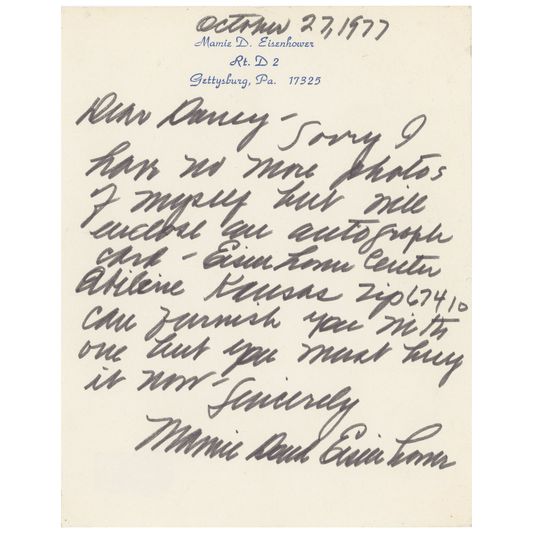 October 27, 1977
Mamie D. Eisenhower
Rt. D 2
Gettysburg, Pa. 17325
Dear Darcy - Sorry I
have no more photos
of myself but will
enclose an autograph
card - Eisenhower Center
Abilene Kansas zip 67410
can furnish you with
one but you must buy
it now -
Sincerely
Mamie Doud Eisenhower